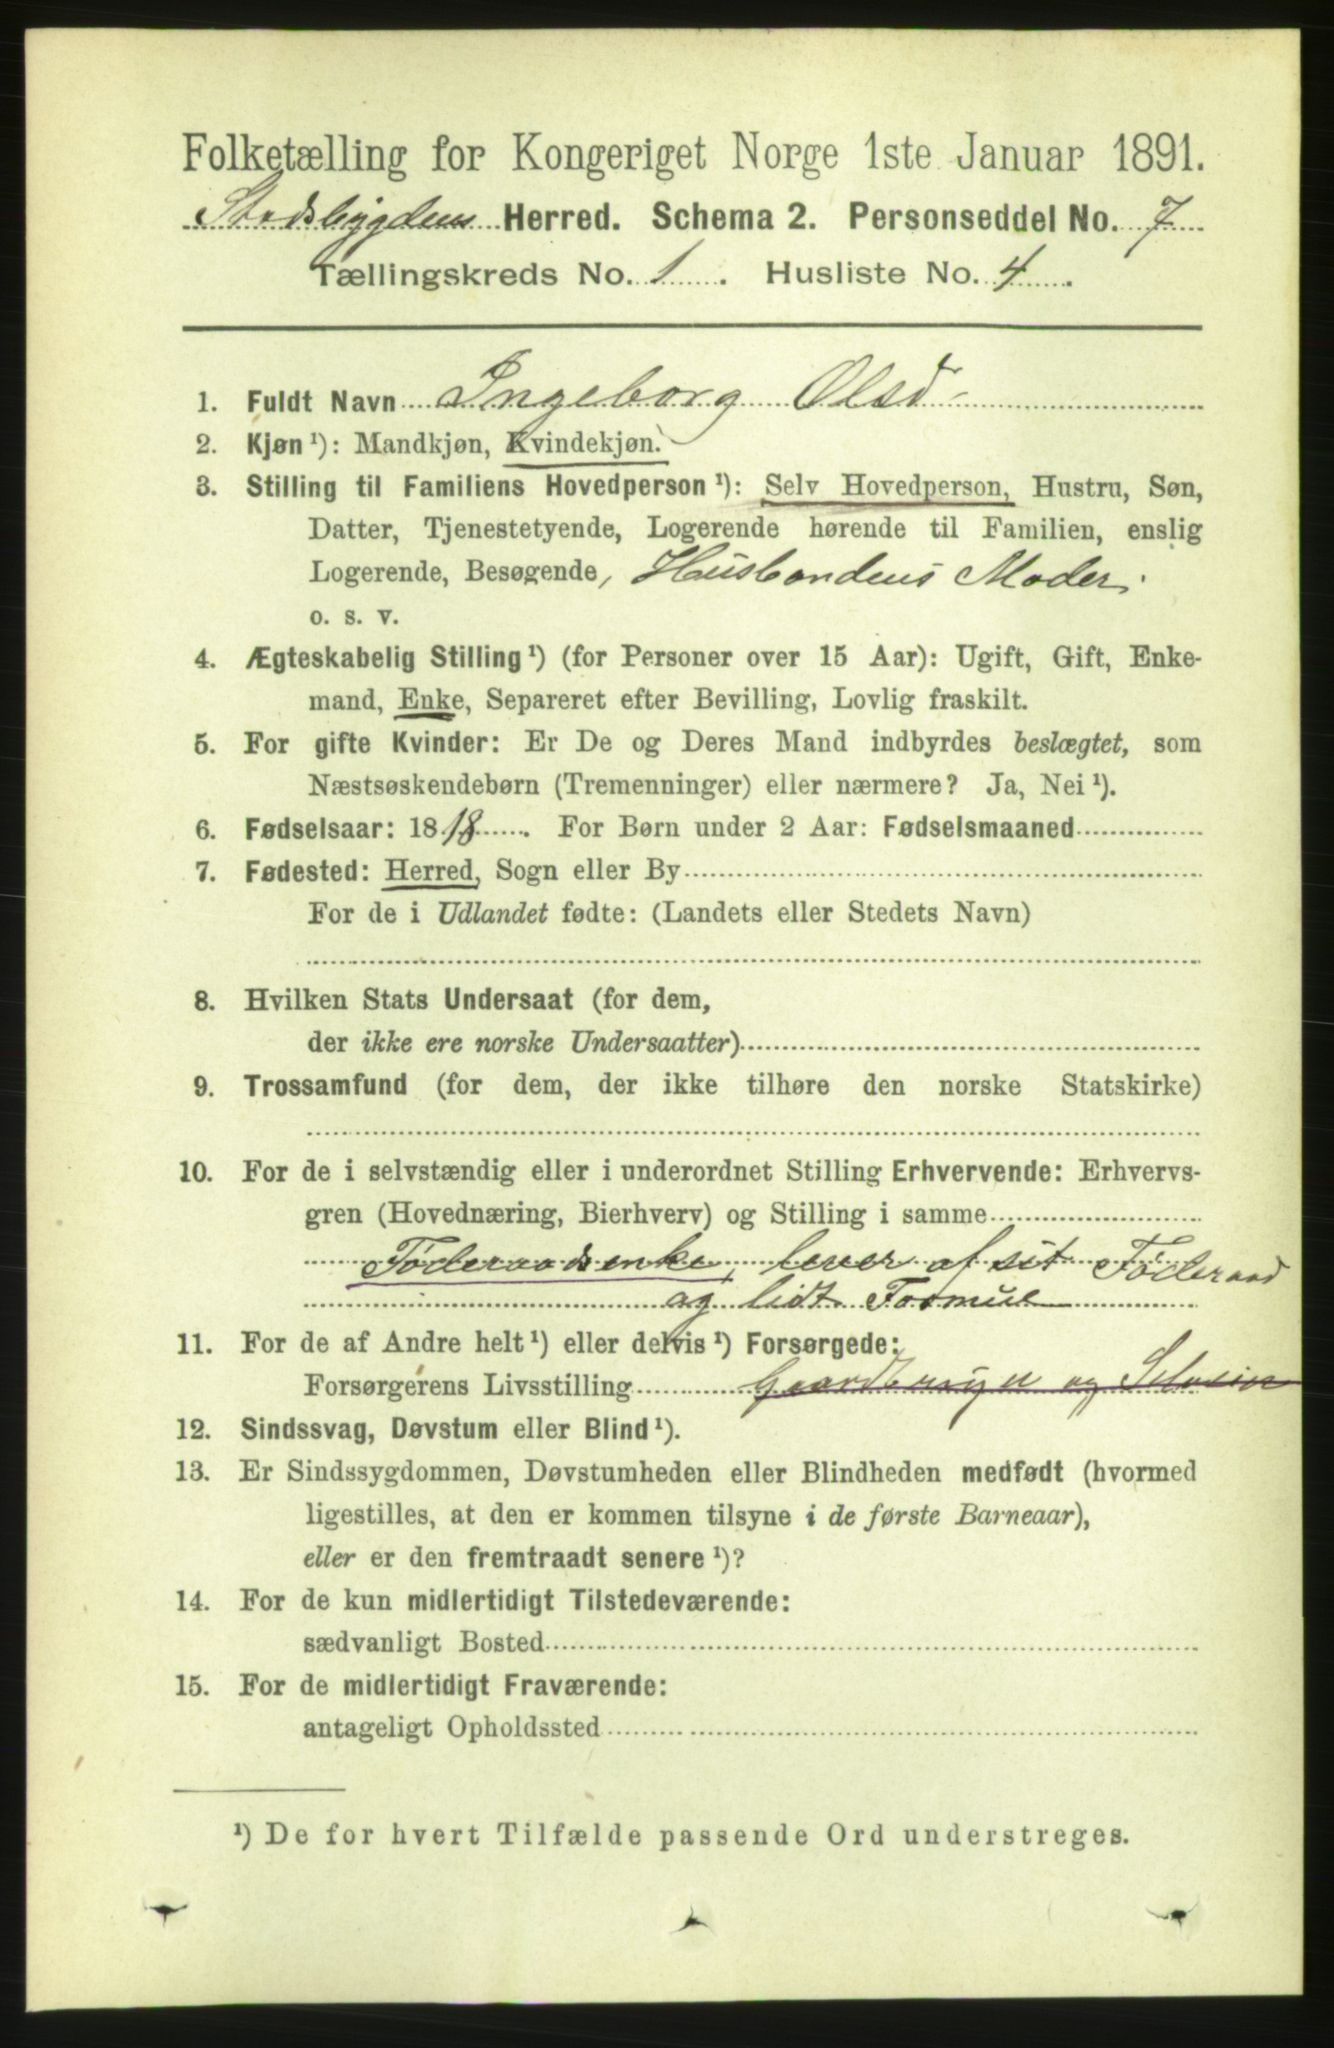 Folketælling for Kongeriget Norge 1ste Januar 1891.
Stadsbygdens Herred. Schema 2. Personseddel No. 7
Tællingskreds No. 1. Husliste No. 4.
1. Fuldt Navn Ingeborg Olsd
2. Kjøn ¹): Mandkjøn, Kvindekjøn.
3. Stilling til Familiens Hovedperson ¹): Selv Hovedperson, Hustru, Søn,
Datter, Tjenestetyende, Logerende hørende til Familien, enslig
Logerende, Besøgende, Husbondens Moder.
o. s. v.
4. Ægteskabelig Stilling ¹) (for Personer over 15 Aar): Ugift, Gift, Enke-
mand, Enke, Separeret efter Bevilling, Lovlig fraskilt.
5. For gifte Kvinder: Er De og Deres Mand indbyrdes beslægtet, som
Næstsøskendebørn (Tremenninger) eller nærmere? Ja, Nei ¹).
6. Fødselsaar: 1818. For Børn under 2 Aar: Fødselsmaaned
7. Fødested: Herred, Sogn eller By
For de i Udlandet fødte: (Landets eller Stedets Navn)
8. Hvilken Stats Undersaat (for dem,
der ikke ere norske Undersaatter)
9. Trossamfund (for dem, der ikke tilhøre den norske Statskirke)
10. For de i selvstændig eller i underordnet Stilling Erhvervende: Erhvervs-
gren (Hovednæring, Bierhverv) og Stilling i samme
Føderaadsenke, lever af sit Føderaad
og lidt Formue
11. For de af Andre helt ¹) eller delvis ¹) Forsørgede:
Forsørgerens Livsstilling Gaardbruger og Seleier
12. Sindssvag, Døvstum eller Blind ¹).
13. Er Sindssygdommen, Døvstumheden eller Blindheden medfødt (hvormed
ligestilles, at den er kommen tilsyne i de første Barneaar),
eller er den fremtraadt senere ¹)?
14. For de kun midlertidigt Tilstedeværende:
sædvanligt Bosted
15. For de midlertidigt Fraværende:
antageligt Opholdssted
¹) De for hvert Tilfælde passende Ord understreges.